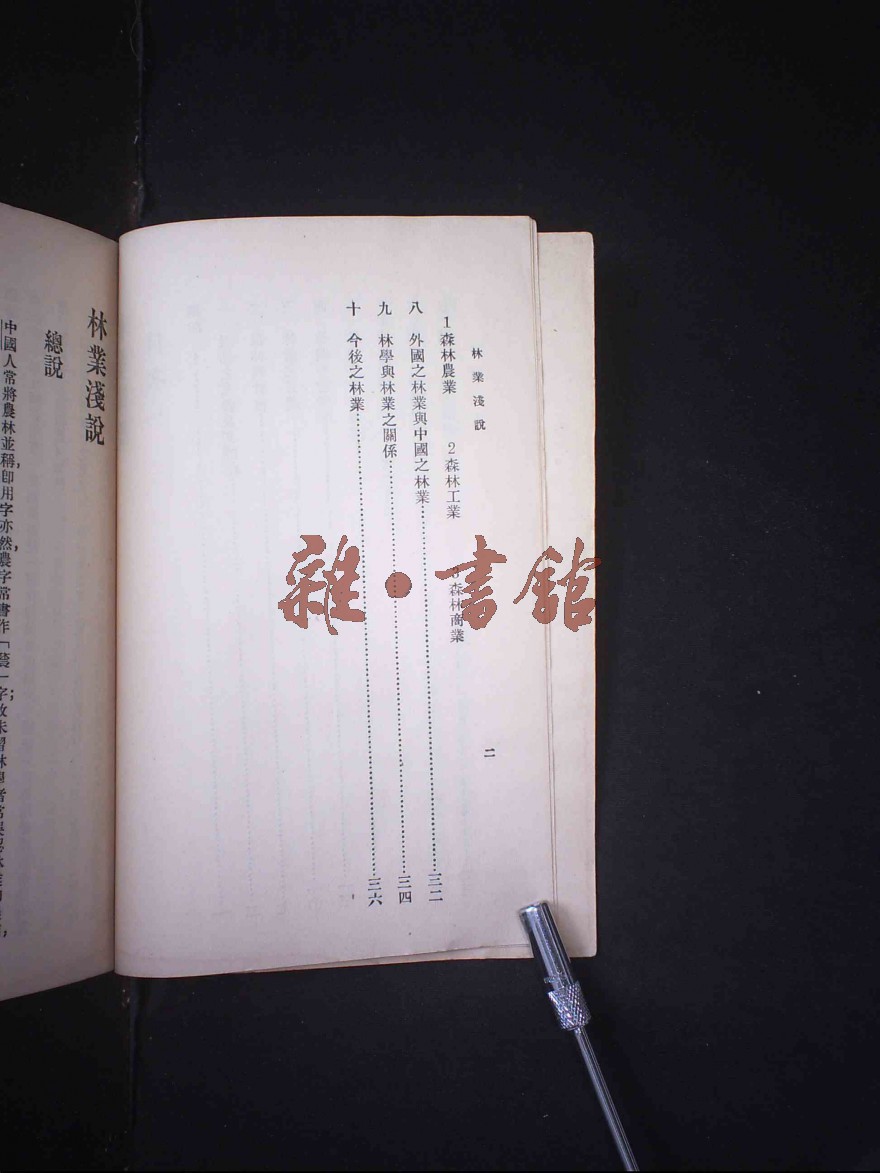 林業淺說
二
1森林農業 2森林工業 3森林商業
八 外國之林業與中國之林業……三二
九 林學與林業之關係……三四
十 今後之林業……三六
林業淺說
總說
中國人常將農林並稱,即用字亦然,農字常書作「䢉」字;故未習林學者常與
雜•書館